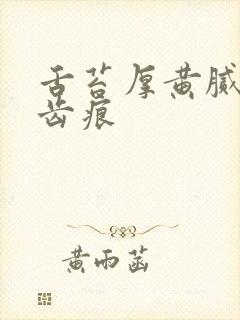 舌苔厚黄腻
齿痕
黄雨菡